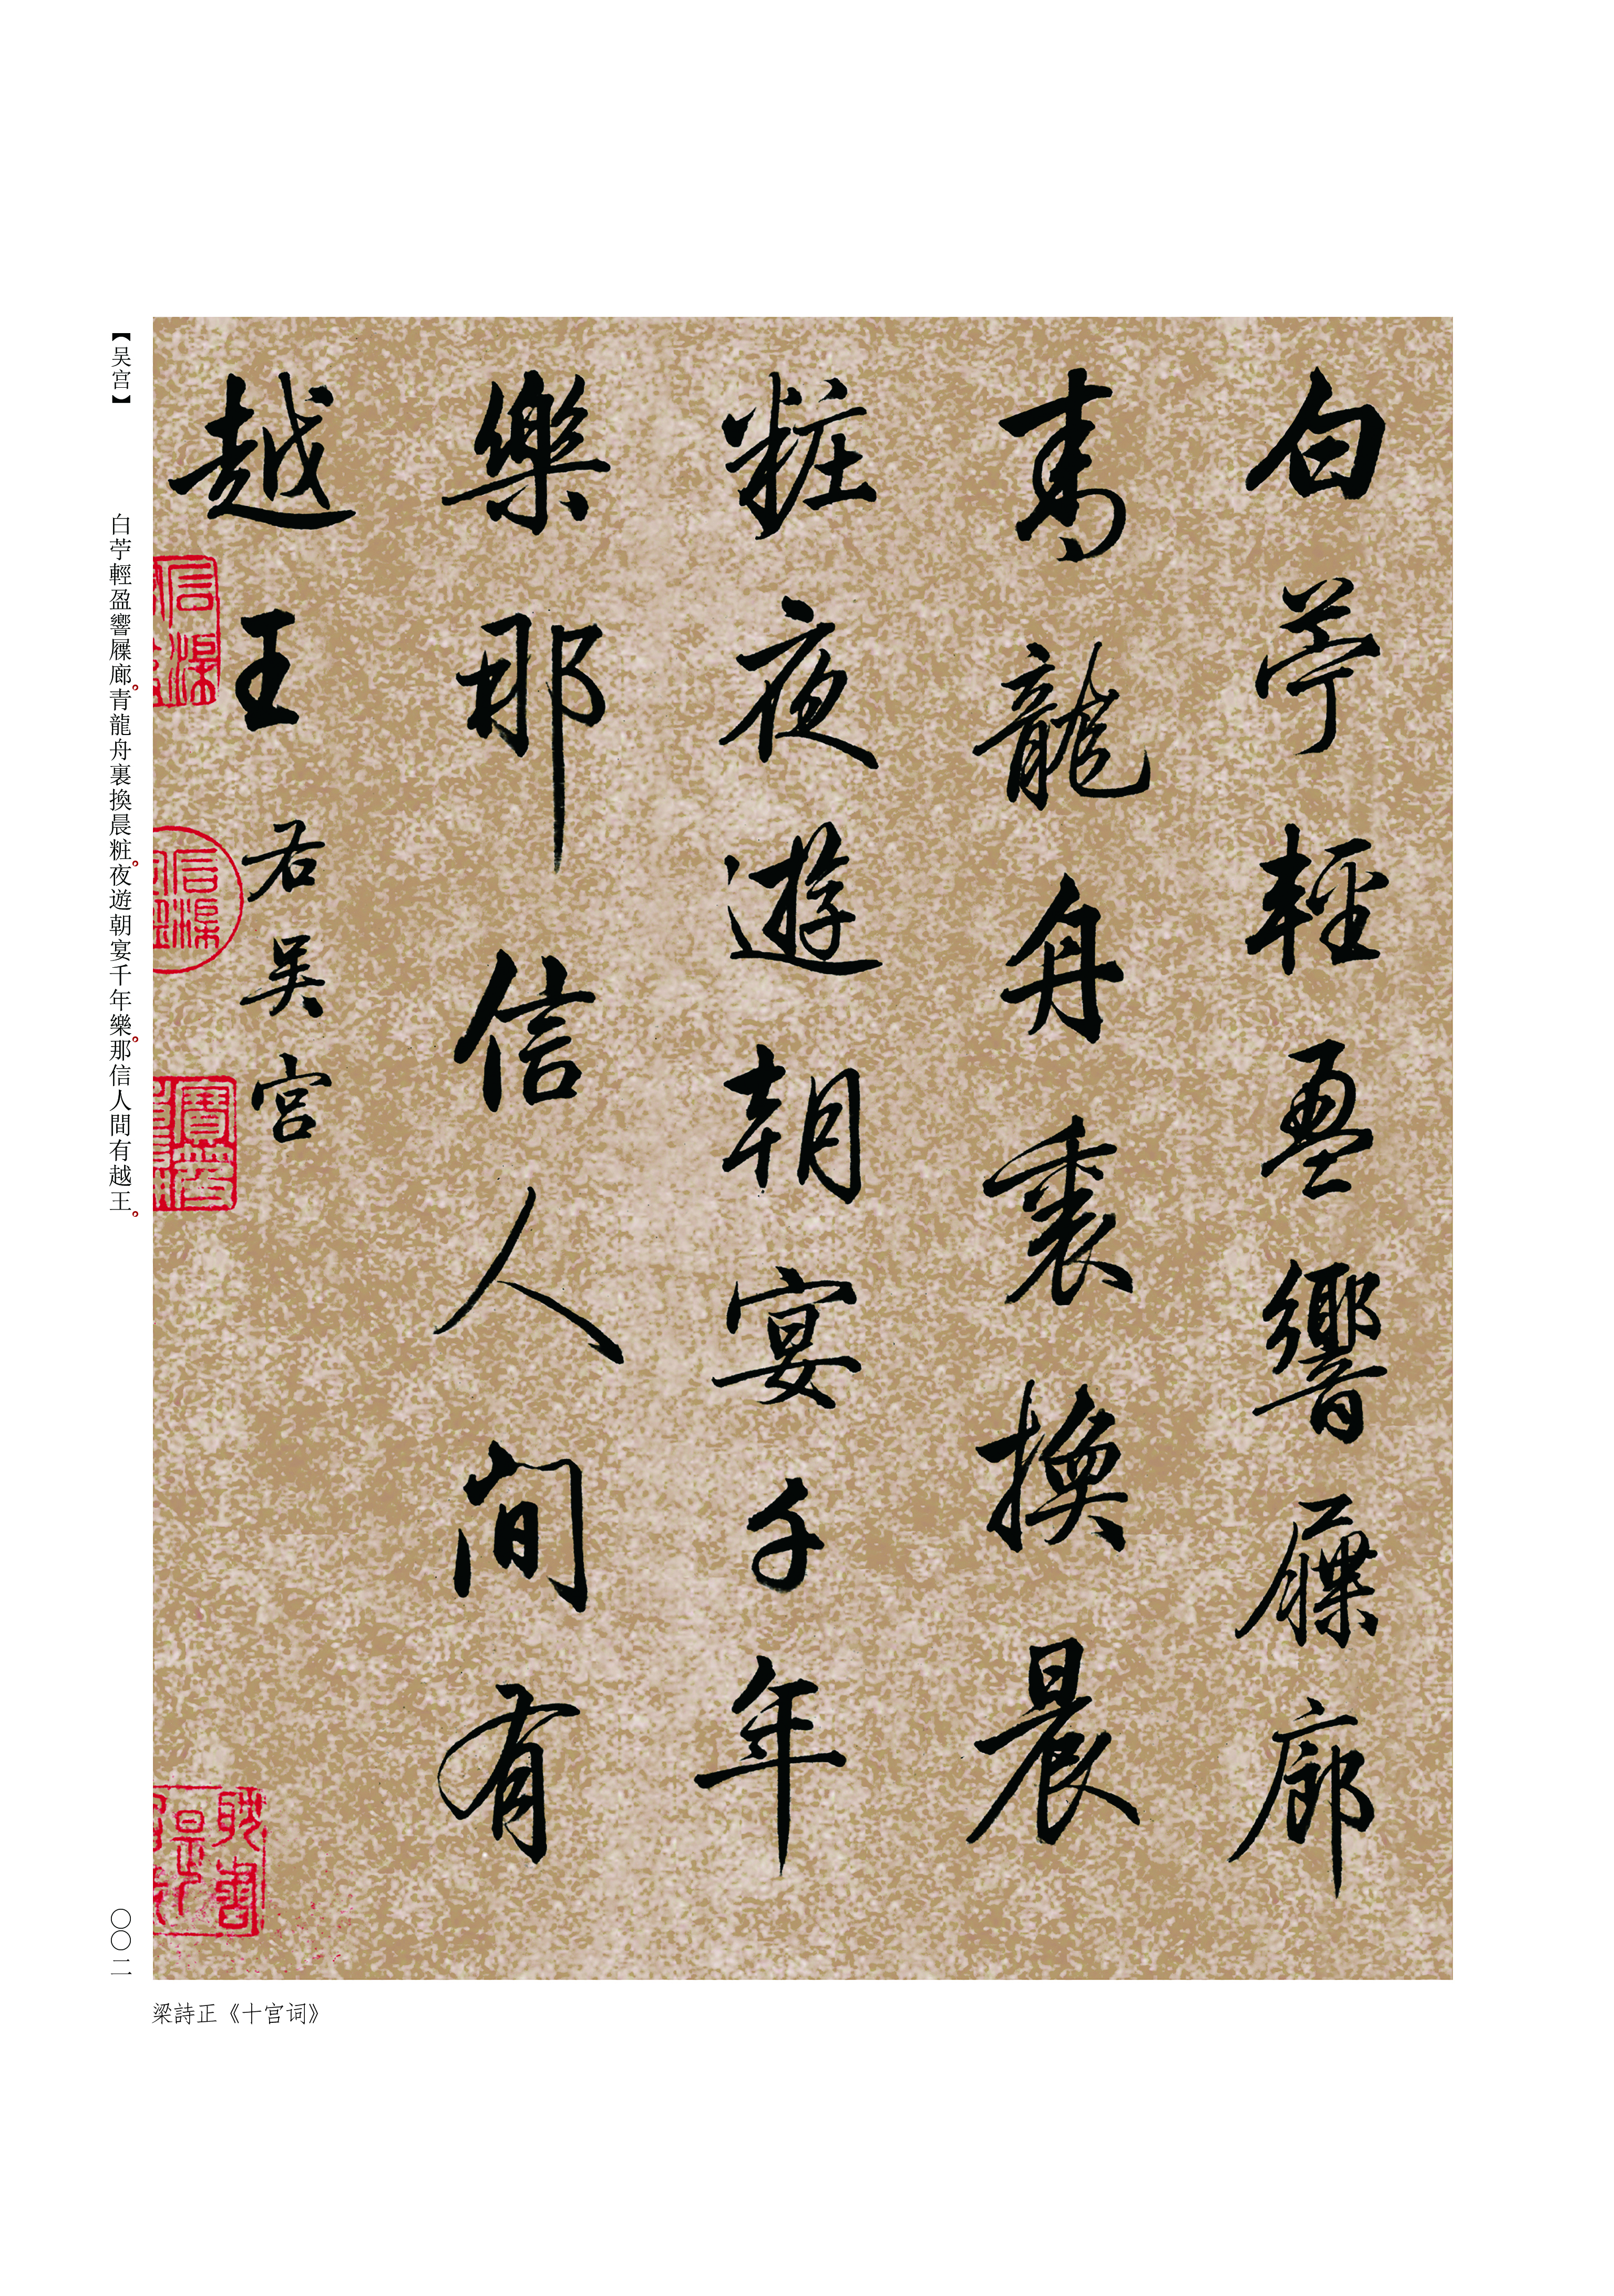 白苧輕盈響屧廊
青龍舟裏換晨
粧夜遊朝宴千年
樂那信人間有
越王
右吴宮
【吴宫】
白苧輕盈響屧廊。青龍舟裏換晨粧。夜遊朝宴千年樂。那信人間有越王。
〇〇二
梁詩正《十宫词》